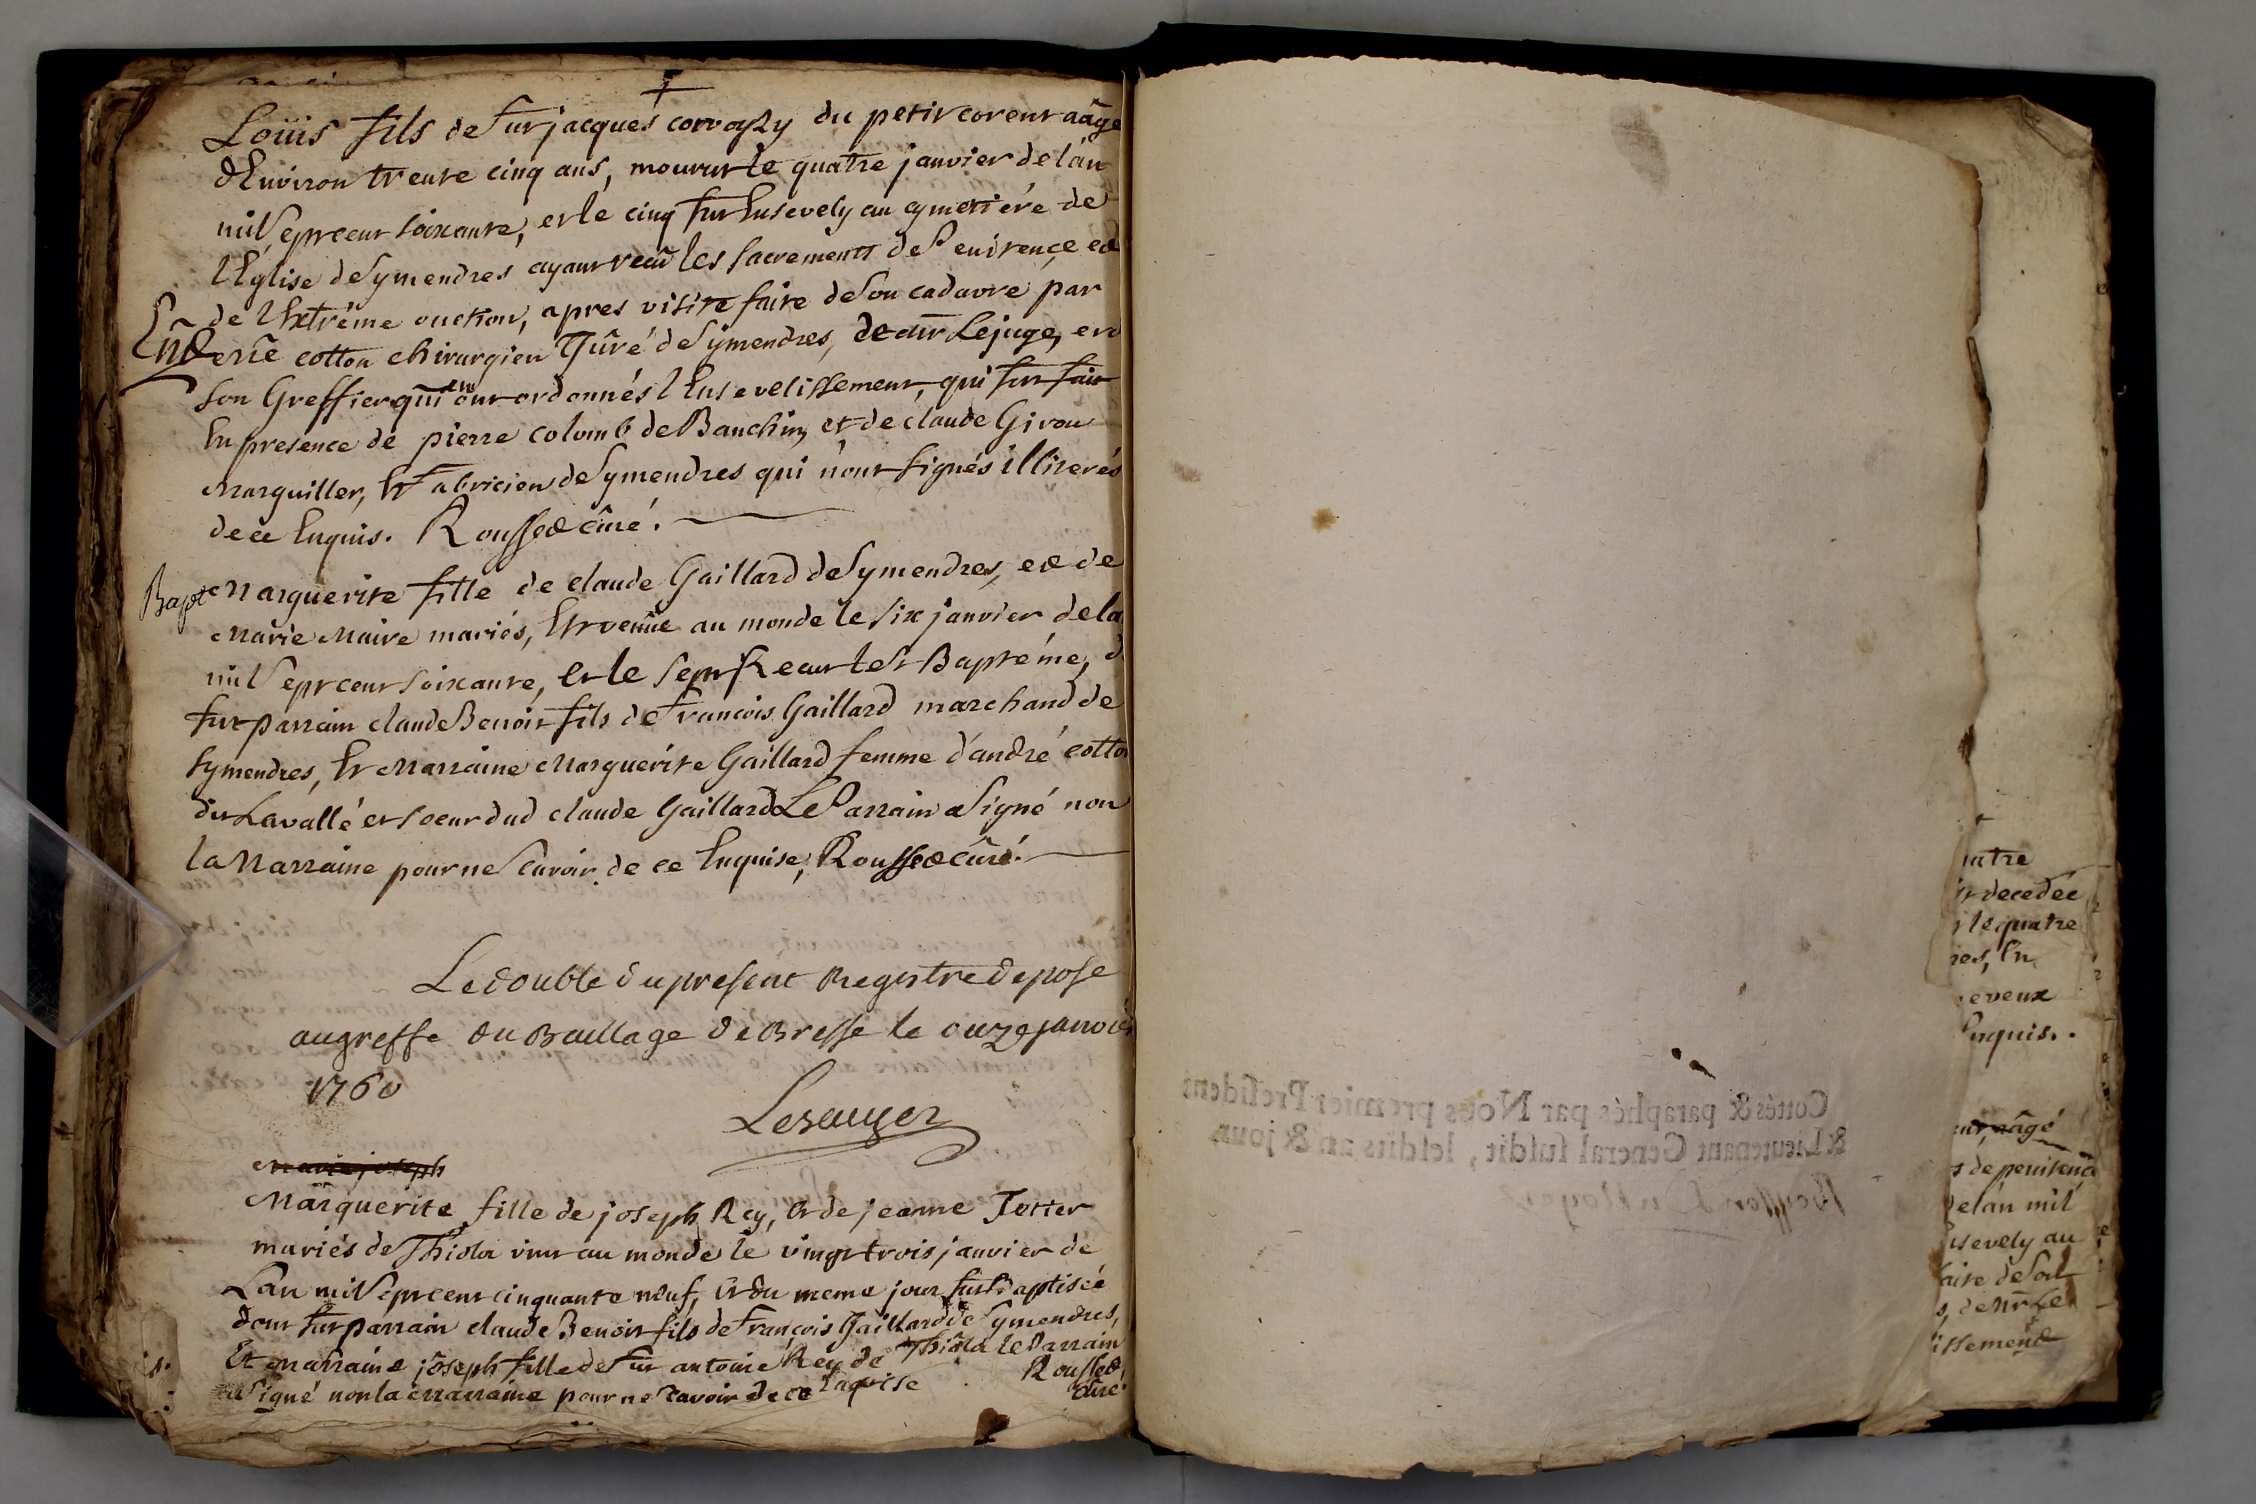 Loüis fils de fut jacques corvoysy du petit corent aâgé
d'Environ trente cinq ans, mourut le quatre janvier de l'an
mil Sept cent soixante, et le cinq fut Ensevely au cymetiére de
l'Eglise de Symendres ayant recû les sacrements de Penitençe et
de l'Extréme onction, apres visite faite de Son cadavre par
cotton chirurgien Jûré de Symendres, de Mr Le juge, et d
son Greffier qui en ont ordonnés l'Ensevelissement, qui fut fait
En presence de pierre colomb de Banchin, et de claude Girou
Marguiller, Et Fabricien de Symendres qui n'ont signés illiterés
de ce Enquis. Rousset cûré.
Bapt
Marguerite fille de claude Gaillard de Symendres, et de
Marie Maire mariés, Est venüe au monde le six janvier de la
mil Sept cent soixante, et le sept Recut le St Baptéme, d
fut parrain claude Benoit fils de Francois Gaillard marchand de
Symendres, Et Marraine Marguerite Gaillard femme d'andré cotton
dit Lavallé et soeur dud claude Gaillard Le Parrain a Signé non
la Marraine pour ne Scavoir de ce Enquise, Rousset cûré.
Le double du present Registre depose
au greffe du Baillage de Bresse le onze janvier
1760
Marie joseph
Marguerite fille de joseph Rey, et de jeanne
mariés de Thiola vint au monde le vingt trois janvier de
L'an mil Sept cent cinquante neuf, Et du meme jour fut Baptisée
dont fut parrain claude Benoit fils de François Gaillard de Symendres,
Et Marraine joseph fille de fut antoine Rey de Thiola le Parrain
a Signé non la Marraine pour ne scavoir de ce Enquise Rousset
cûré.
Cottés & paraphés par Nous premier President
& Lieutenant General susdit, lesdits an & jour
uatre
decedée
le quatre
res, En
neveux
Enquis.
aâgé
s de penitençe
de l'an mil
nsevely au
faite de Son
s, de Mr Le
issement